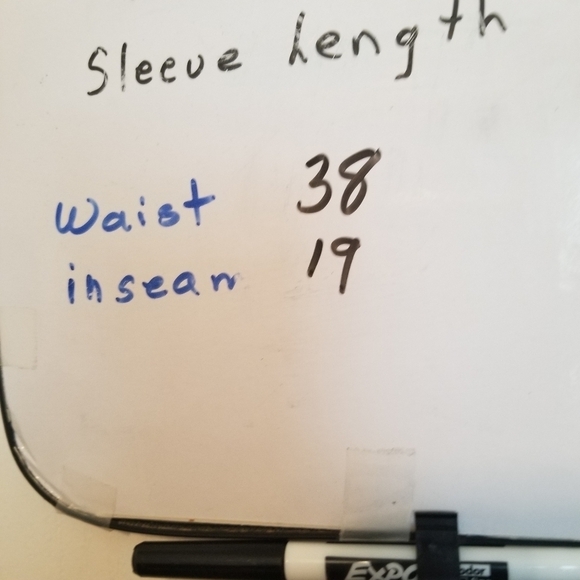 Sleeve Length
Waist 38
inseam 19
EXPO